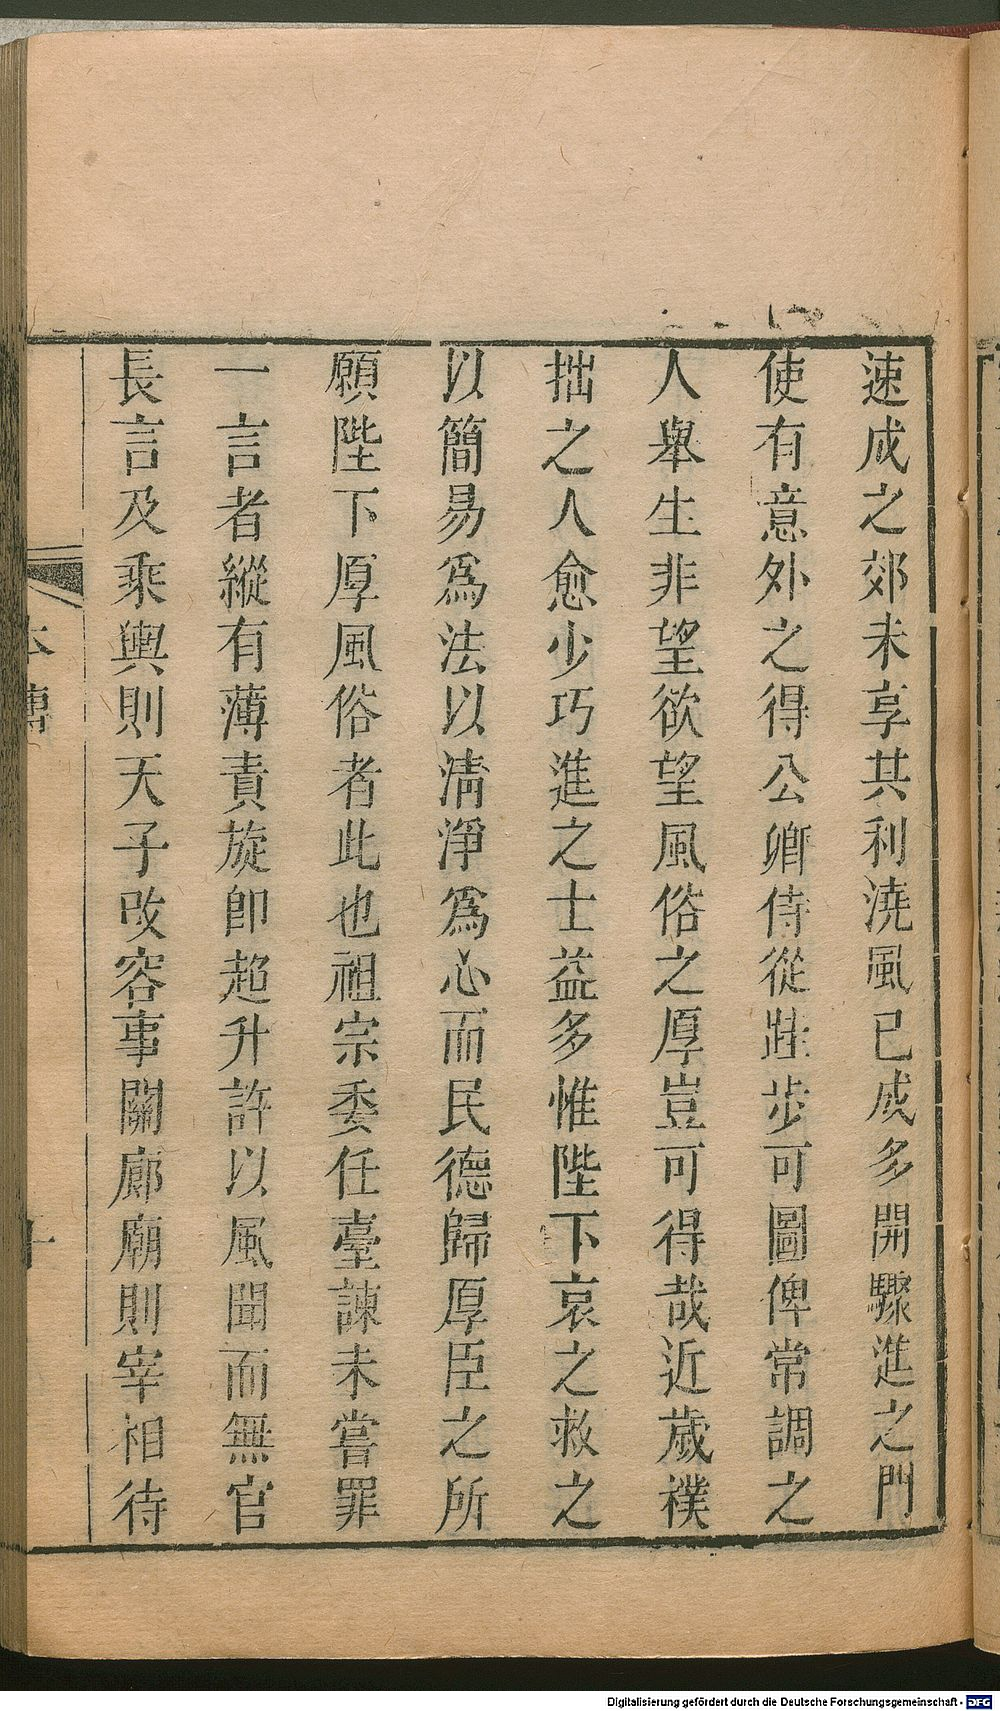 速成之郊未享其利澆風已成多開驟進之門
使有意外之得公卿侍從跬步可圖俾常調之
人舉生非望欲望風俗之厚豈可得哉近歲樸
拙之人愈少巧進之士益多惟陛下哀之救之
以簡易爲法以淸淨爲心而民德歸厚臣之所
願陛下厚風俗者此也祖宗委任臺諫未嘗罪
一言者縱有薄責旋卽超升許以風聞而無官
長言及乘輿則天子改容事關廊廟則宰相待
本傳
十
Digitalisierung gefördert durch die Deutsche Forschungsgemeinschaft - DFG